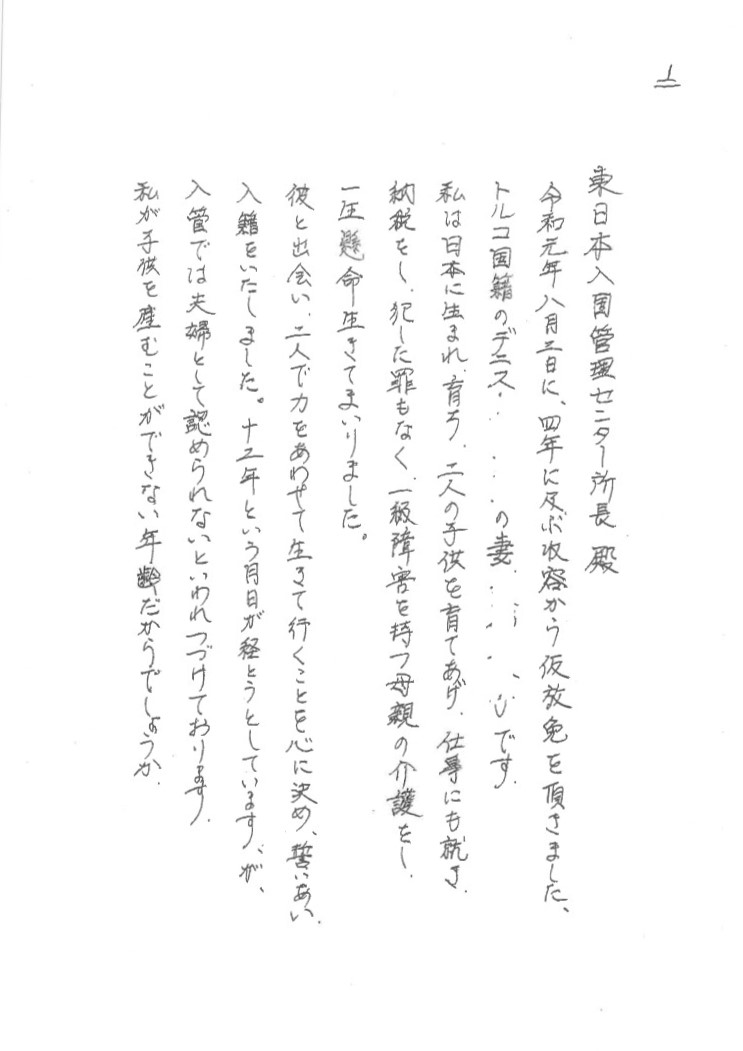 1
東日本入国管理センター所長 殿
令和元年八月二日に、四年に及ぶ収容から仮放免を頂きました、
トルコ国籍のデニス の妻 です.
私は日本に生まれ、育ち、二人の子供を育てあげ、仕事にも就き、
納税をし、犯した罪もなく、一級障害を持つ母親の介護をし、
一生懸命生きてまいりました。
彼と出会い、二人で力をあわせて生きて行くことを心に決め、誓いあい、
入籍をいたしました。十二年という月日が経とうとしています、が、
入管では夫婦として認められないといわれつづけております.
私が子供を産むことができない年齢だからでしょうか.